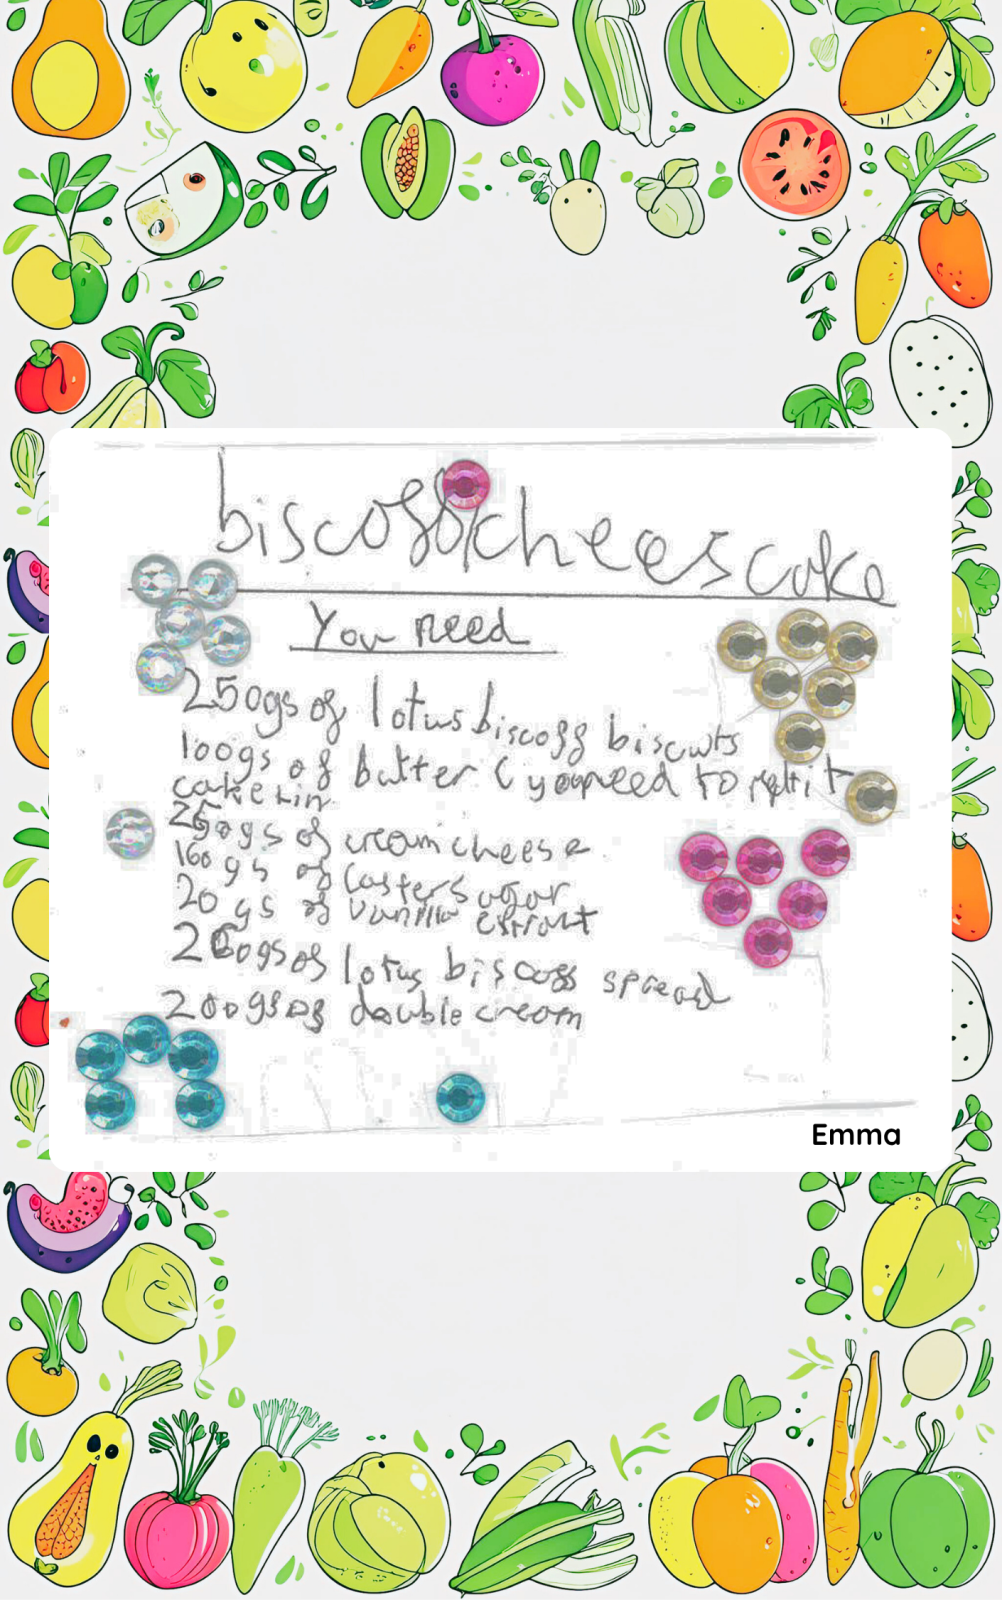 biscoff cheescake
You need
250gs of lotus biscoff biscuits
100gs of butter (you need to melt it
cake tin
250gs of cream cheese
100gs of caster sugar
20gs of vanilla extract
200gs of lotus biscoff spread
200gs of double cream
Emma